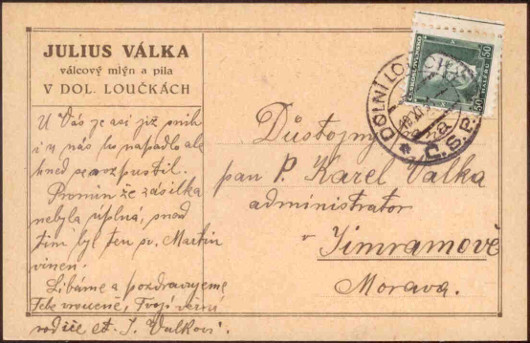 JULIUS VÁLKA
válcový mlýn a pila
V DOL. LOUČKÁCH
U Vás je asi již sníh
i u nás to napadlo ale
hned se rozpustil.
Promiň že zásilka
nebyla úplná, snad
tím byl ten sv. Martin
vinen.
Líbáme a pozdravujeme
Tebe vroucně, Tvoji věrní
rodiče J. Válkovi.
Důstojný
pan P. Karel Válka
administrator
v Jimramově
Morava.
DOLNÍ LOUČKY
Č.S.P.
50
50